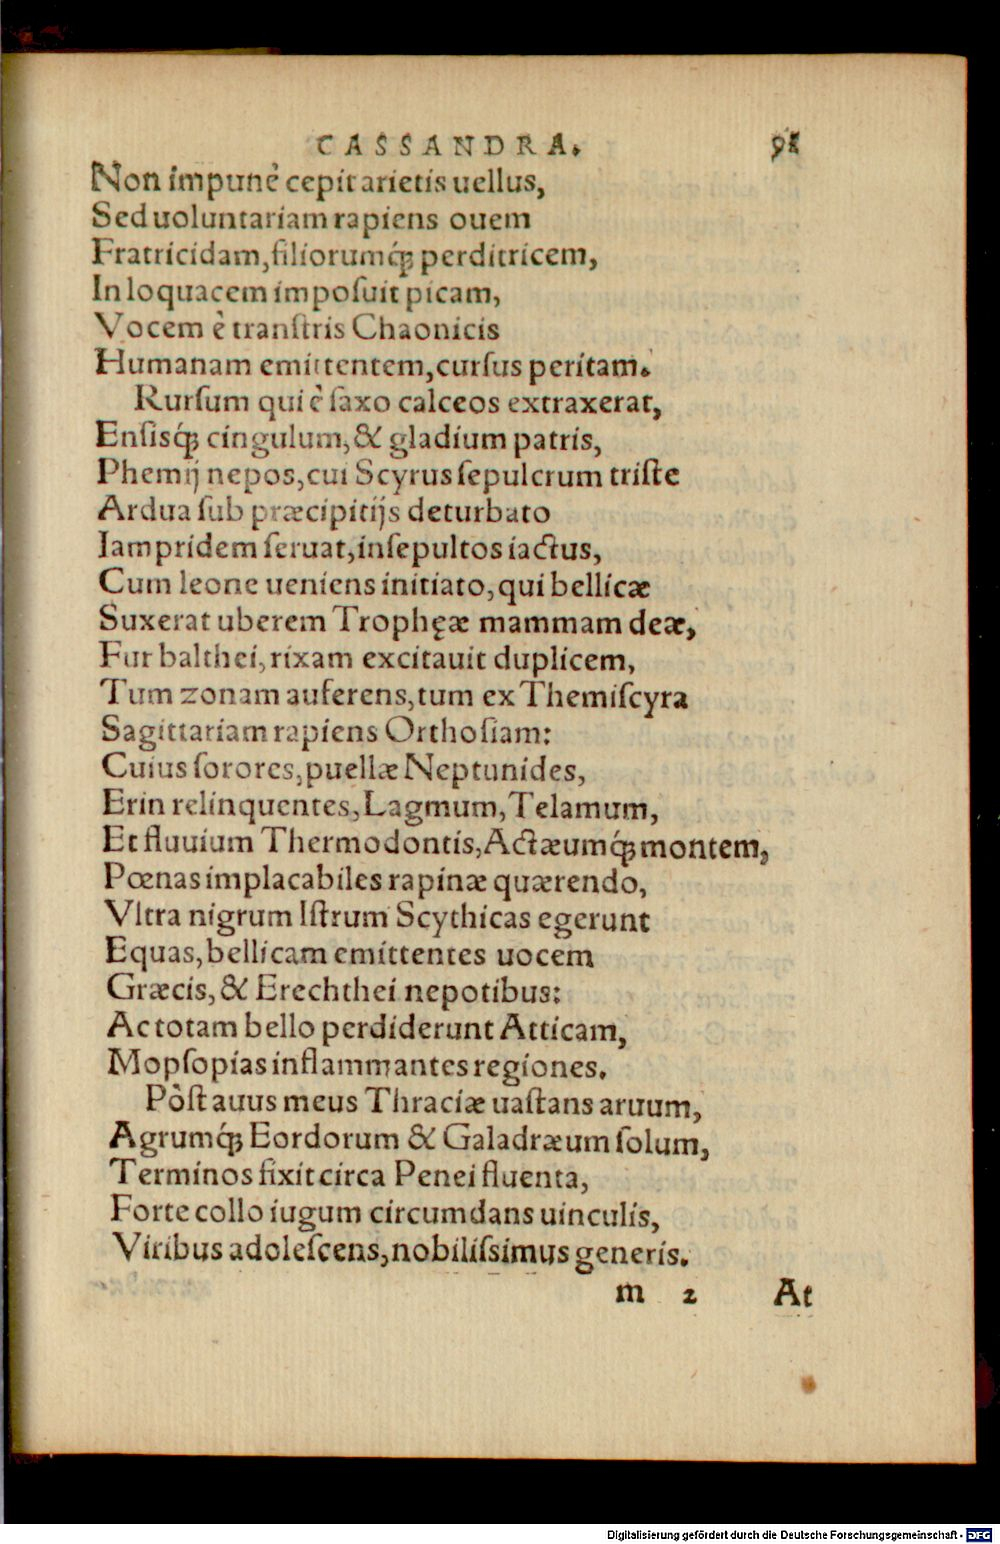 CASSANDRA. 91
Non impunè cepit arietis uellus,
Sed uoluntariam rapiens ouem
Fratricidam, filiorumq́; perditricem,
In loquacem imposuit picam,
Vocem è transtris Chaonicis
Humanam emittentem, cursus peritam.
Rursum qui è saxo calceos extraxerat,
Ensisq́; cingulum, & gladium patris,
Phemij nepos, cui Scyrus sepulcrum triste
Ardua sub præcipitijs deturbato
Iampridem seruat, insepultos iactus,
Cum leone ueniens initiato, qui bellicæ
Suxerat uberem Trophęæ mammam deæ,
Fur balthei, rixam excitauit duplicem,
Tum zonam auferens, tum ex Themiscyra
Sagittariam rapiens Orthosiam:
Cuius sorores, puellæ Neptunides,
Erin relinquentes, Lagmum, Telamum,
Et fluuium Thermodontis, Actæumq́; montem,
Pœnas implacabiles rapinæ quærendo,
Vltra nigrum Istrum Scythicas egerunt
Equas, bellicam emittentes uocem
Græcis, & Erechthei nepotibus:
Ac totam bello perdiderunt Atticam,
Mopsopias inflammantes regiones.
Pòst auus meus Thraciæ uastans aruum,
Agrumq́; Eordorum & Galadræum solum,
Terminos fixit circa Penei fluenta,
Forte collo iugum circumdans uinculis,
Viribus adolescens, nobilissimus generis.
m 2 At
Digitalisierung gefördert durch die Deutsche Forschungsgemeinschaft - DFG